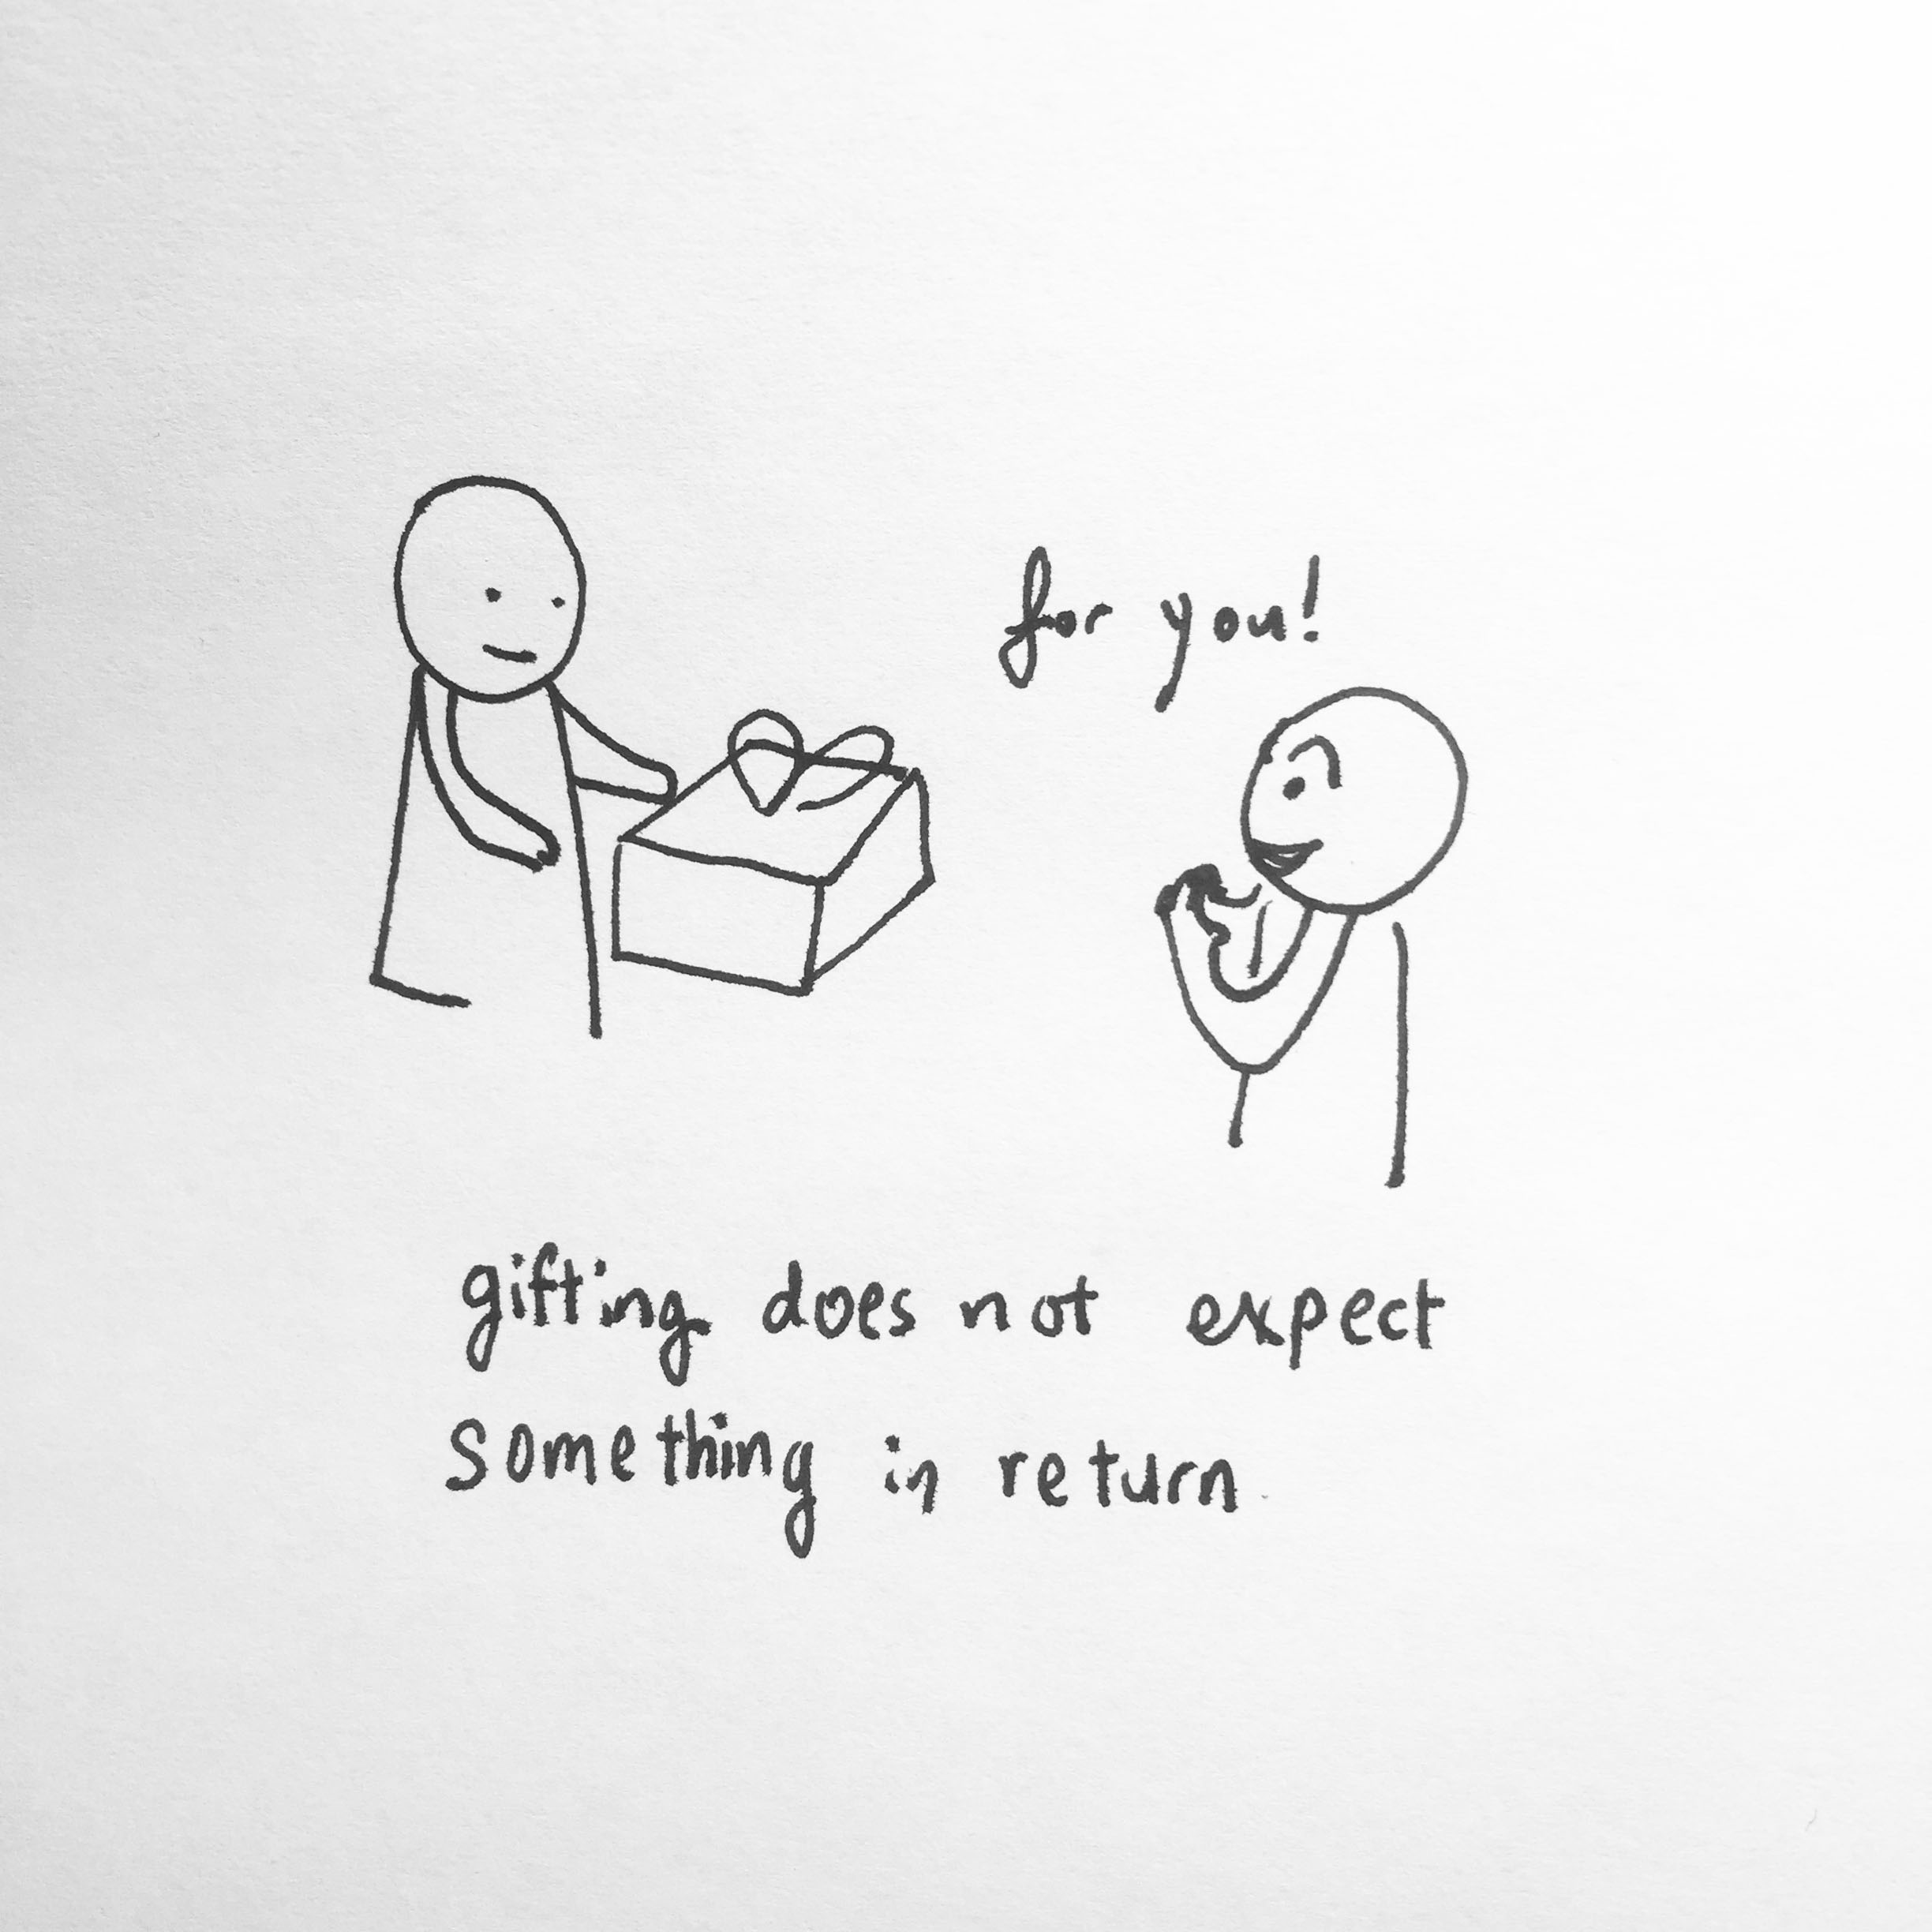 for you!
gifting does not expect
something in return